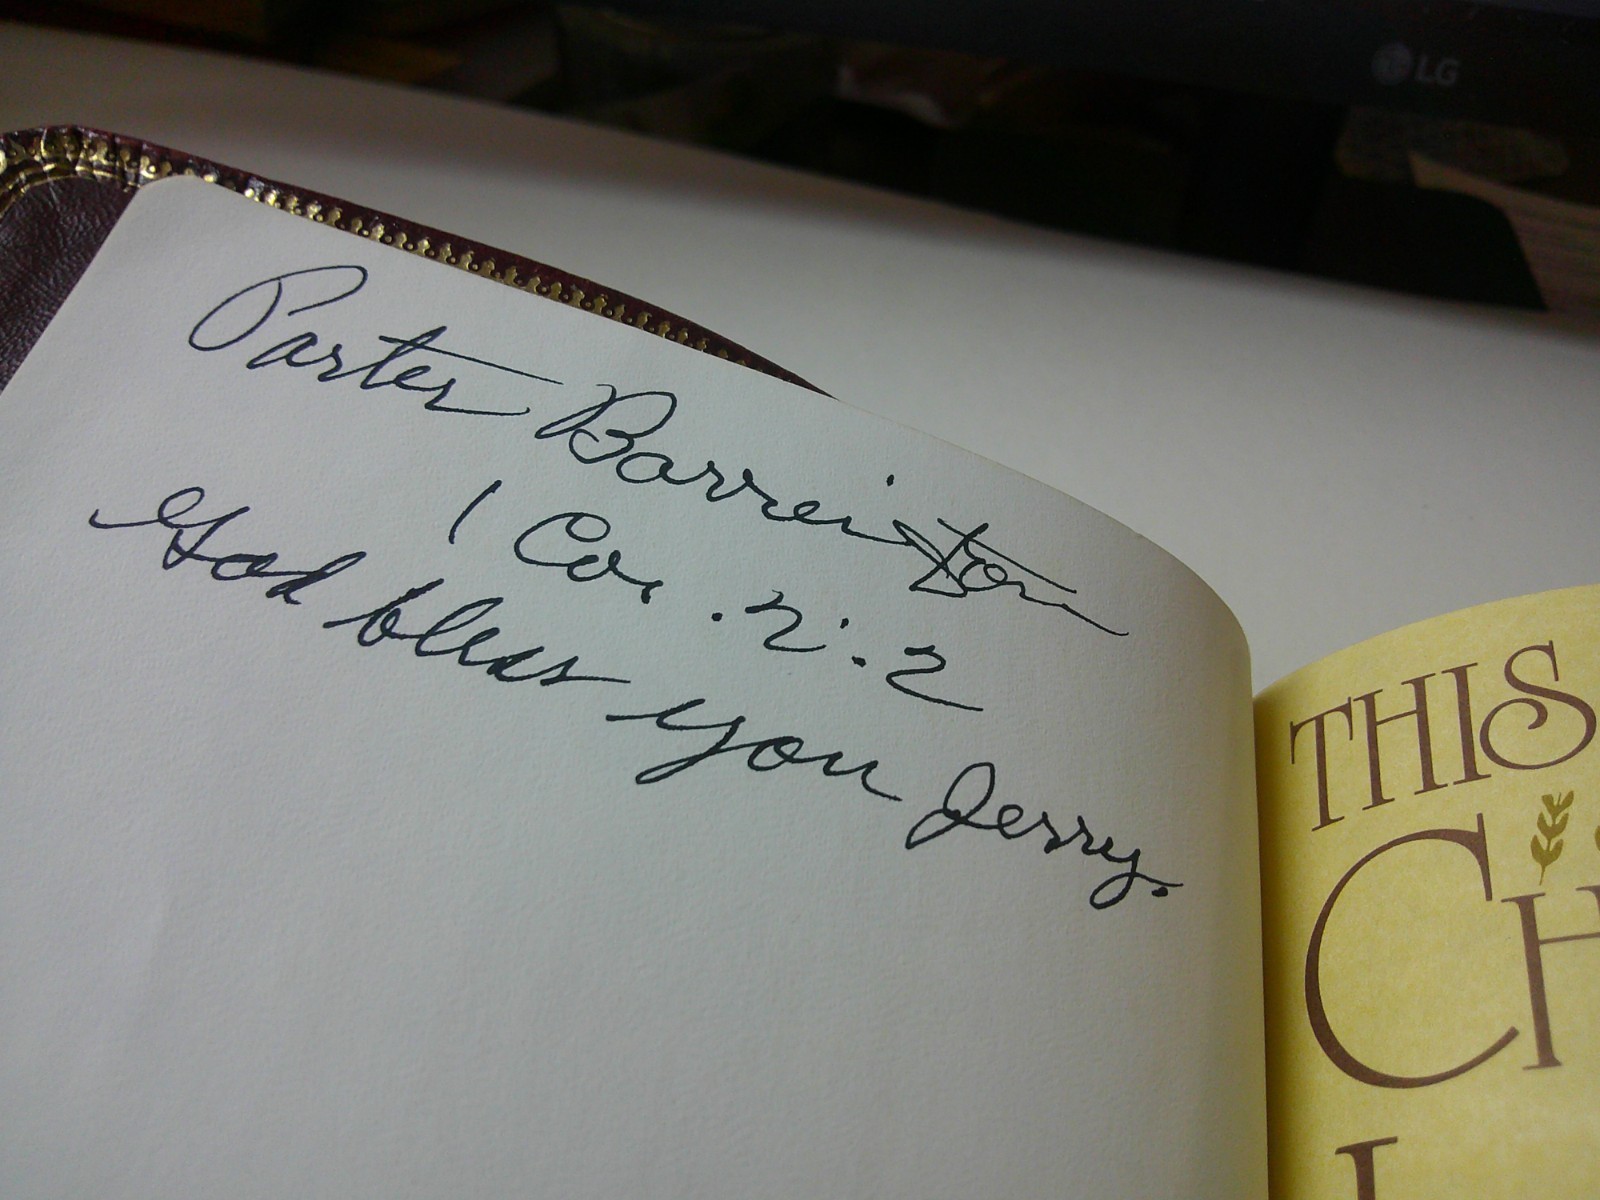 LG
Porter Barrington
1 Cor. 2:2
God bless you Jerry.
THIS
CH